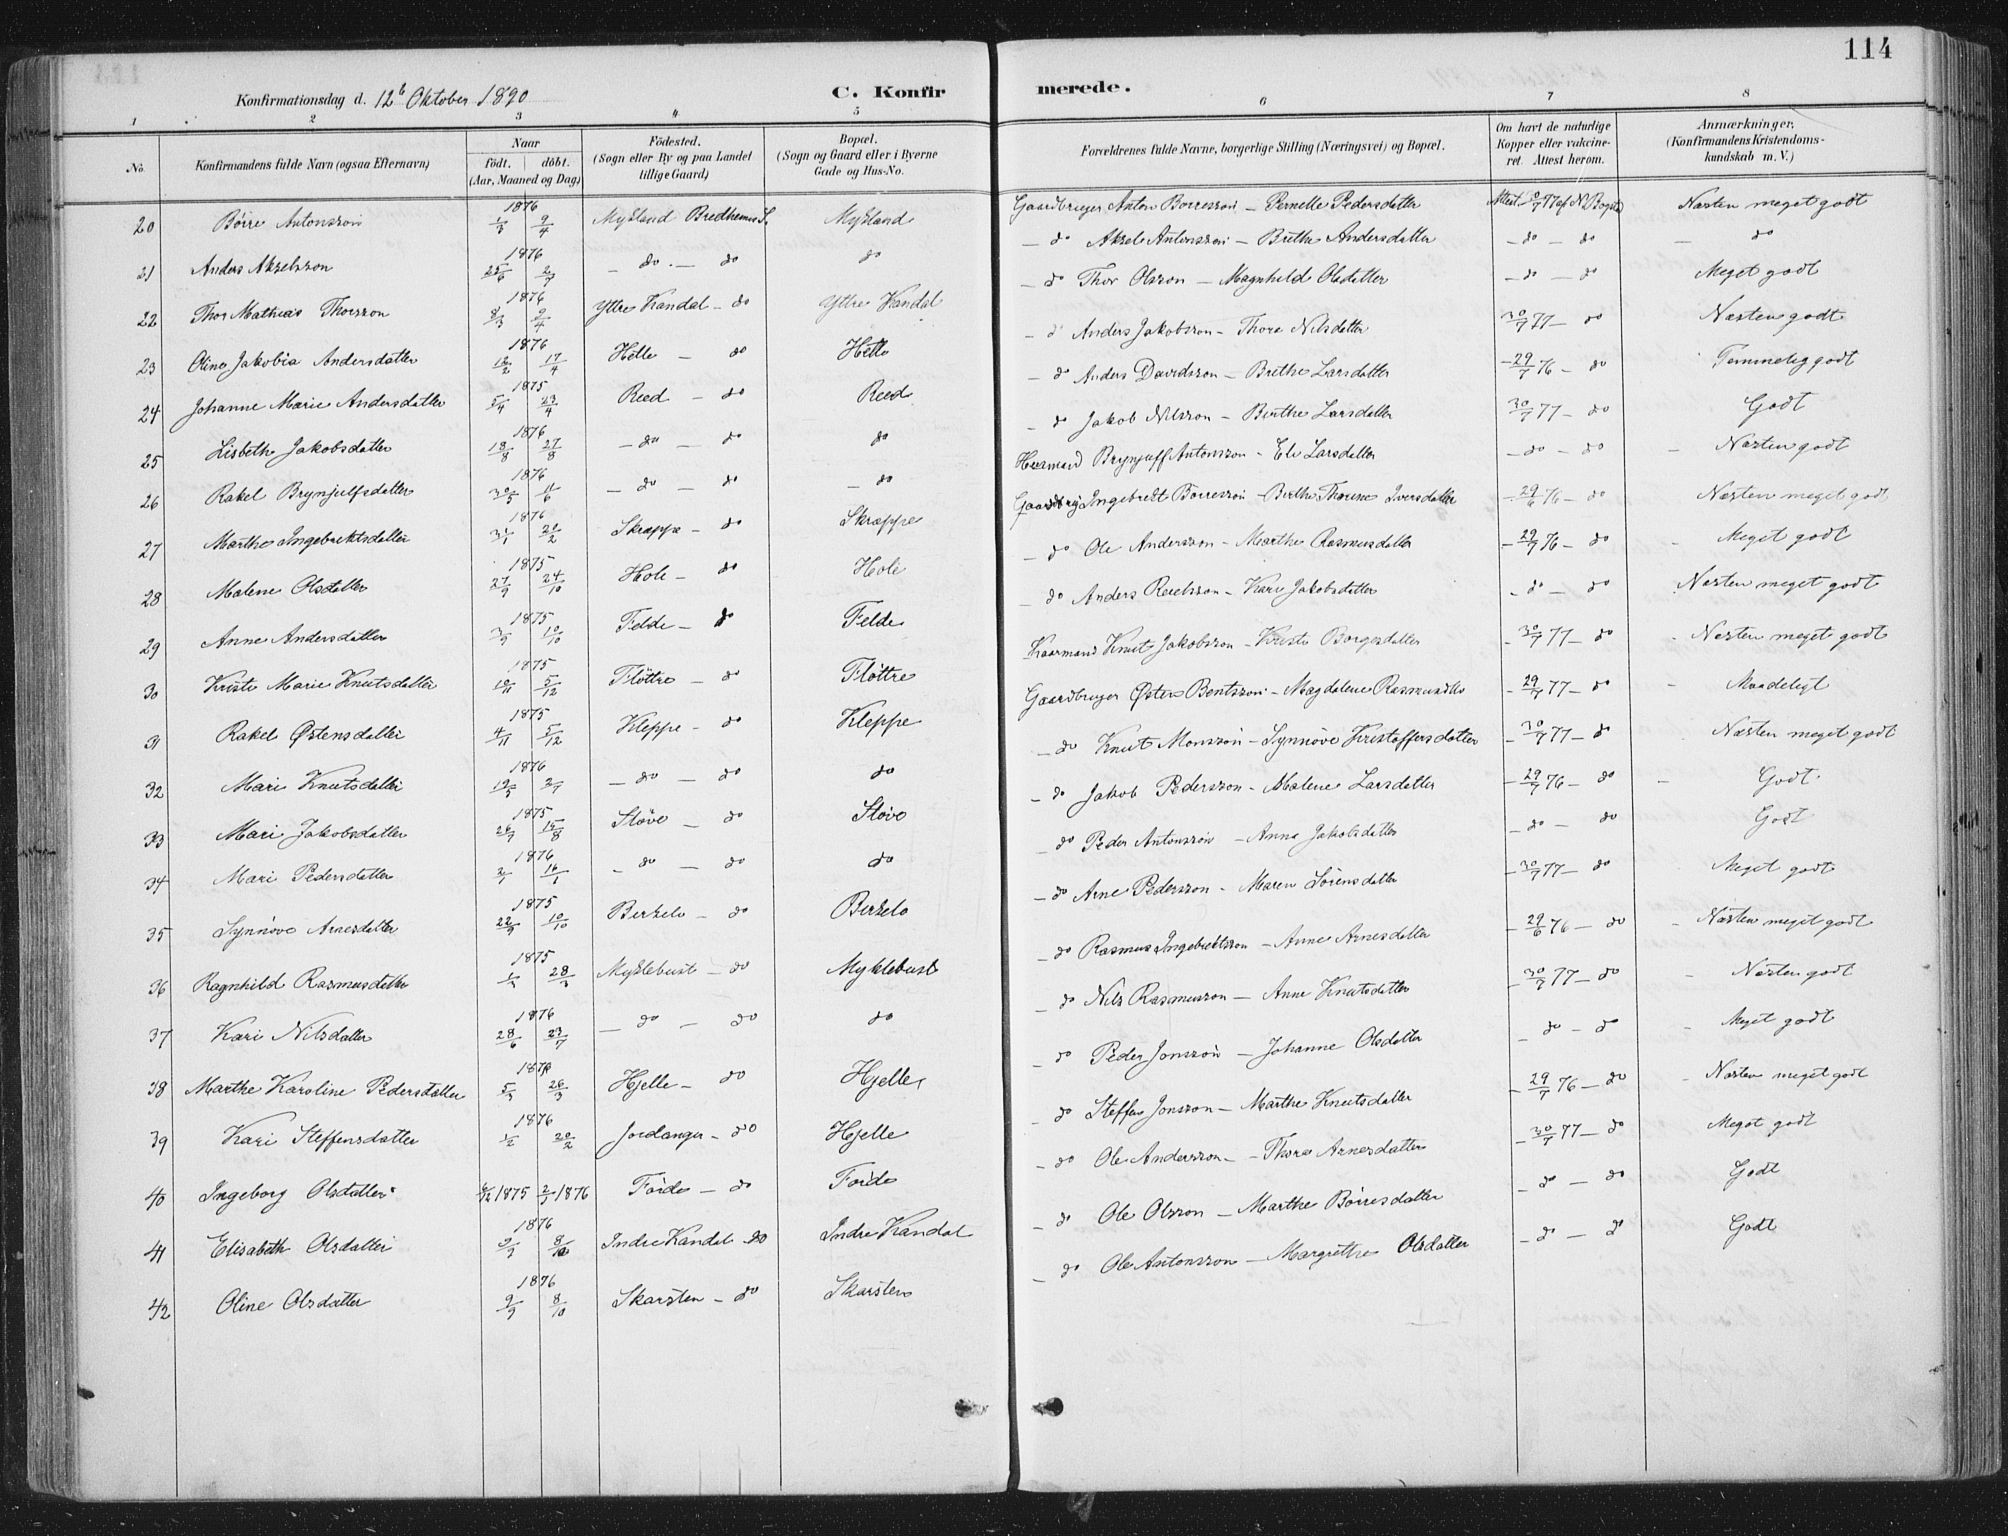 114
Konfirmationsdag d. 12te Oktober 1890 C. Konfir merede.
1 2 3 4 5 6 7 8
No. Konfirmandens fulde Navn (ogsaa Efternavn) Naar födt. döbt. (Aar, Maaned og Dag) Födested. (Sogn eller By og paa Landet tillige Gaard) Bopæl. (Sogn og Gaard eller i Byerne Gade og Hus-No. Forældrenes fulde Navne, borgerlige Stilling (Næringsvei) og Bopæl. Om havt de naturlige Kopper eller vakcineret. Attest herom. Anmærkninger. (Konfirmandens Kristendomskundskab m. V.)
20 Börre Antonsson 1876 1/3 9/4 Mykland Bredheims S. Mykland Gaardbruger Anton Borresson - Pernelle Pedersdatter Næsten meget godt
21 Anders Akselsson 1876 25/6 2/7 - do - do do - do Aksel Antonsson - Brithe Andersdatter - do - do - do
22 Thor Mathias Thorsson 1876 8/3 9/4 Yttre Kandal - do Yttre Kandal - do Thor Olsson - Magnhild Olsdatter - do - do Meget godt
23 Oline Jakobia Andersdatter 1876 12/2 17/4 Helle - do Helle - d Anders Jakobsson - Thora Nilsdatter 30/7 77 - do Næsten godt
24 Johanne Marie Andersdatter 1875 5/4 23/4 Reed - do Reed - do Anders Davidsson - Brithe Larsdatter - 29/7 76 - do Temmelig godt
25 Lisbeth Jakobsdatter 1876 18/8 27/8 - do - do do - do Jakob Nilsson - Birthe Larsdatter 30/7 77 - do Godt
26 Rakel Brynjulfsdatter 1876 30/5 11/6 - do - do - do Huusmand Brynjulf Antonsson - Eli Larsdatter - do - do - Næsten godt
27 Marthe Ingebrektsdatter 1876 31/1 20/2 Skræppe - do Skræppe Gaardbrg Ingebrekt Borresson - Birthe Thorine Iversdatter - 29/6 76 - do Næsten meget godt
28 Malene Olsdatter 1875 27/9 24/10 Hole - do Hole - do Ole Andersson - Marthe Rasmusdatter - 29/7 76 - do - Meget godt
29 Anne Andersdatter 1875 3/9 10/10 Felde - do Felde - do Anders Reielsson - Kari Jakobsdatter - do - do Næsten meget godt
30 Kristi Marie Knutsdatter 1875 10/11 5/12 Flöttre - do Flöttre Kaarmand Knut Jakobsson - Kristi Borgesdatter - 30/7 77 - do - Næsten meget godt
31 Rakel Østensdatter 1875 4/11 5/12 Kleppe - do Kleppe Gaardbruger Østen Bentsson - Magdalene Rasmusdtr - 29/7 77 - do - Maadeligt
32 Mari Knutsdatter 1876 - do - do do - do Knut Monsson - Synnöve Kristoffersdatter - 30/7 77 - do Næsten meget godt
33 Mari Jakobsdatter 1875 15/8 Slöve - do Slöve - do Jakob Pedersson - Malene Larsdatter - 29/7 76 - do - Godt
34 Mari Pedersdatter 1876 2/1 16/1 - do - do do - do Peder Antonsson - Anna Jakobsdatter - do - do Godt
35 Synnöve Arnesdatter 1875 22/9 10/10 Berkelo - do Berkelo - do Arne Pedersson - Maren Sörensdatter - 30/7 77 - do - Meget godt
36 Ragnhild Rasmusdatter 1875 28/3 Myklebust - do Myklebust - do Rasmus Ingebrektsson - Anne Arnesdatter - 29/6 76 - do - Næsten meget godt
37 Kari Nilsdatter 1876 28/6 23/7 - do - do do - do Nils Rasmusson - Anne Knutsdatter - 30/7 77 - do - Næsten godt
38 Marthe Karoline Pedersdatter 1876 5/3 26/3 Hjelle - do Hjelle - do Peder Jonsson - Johanne Olsdatter - do - do - Meget godt
39 Kari Steffensdatter 1876 1/2 20/2 Jordanger - do Hjelle - do Steffen Jonsson - Marthe Knutsdatter - 29/7 76 - do - Næsten meget godt
40 Ingeborg Olsdatter 1875 2/1 1876 Förde - do Förde - do Ole Andersson - Thora Arnesdatter - 30/7 77 - do - Meget godt
41 Elisabeth Olsdatter 1876 9/9 8/10 Indre Kandal do Indre Kandal - do Ole Olsson - Marthe Börresdatter - do - do Godt
42 Oline Olsdatter 1876 9/9 8/10 Skarsten - do Skarsten - do Ole Antonsson - Margrethe Olsdatter - do - do Godt